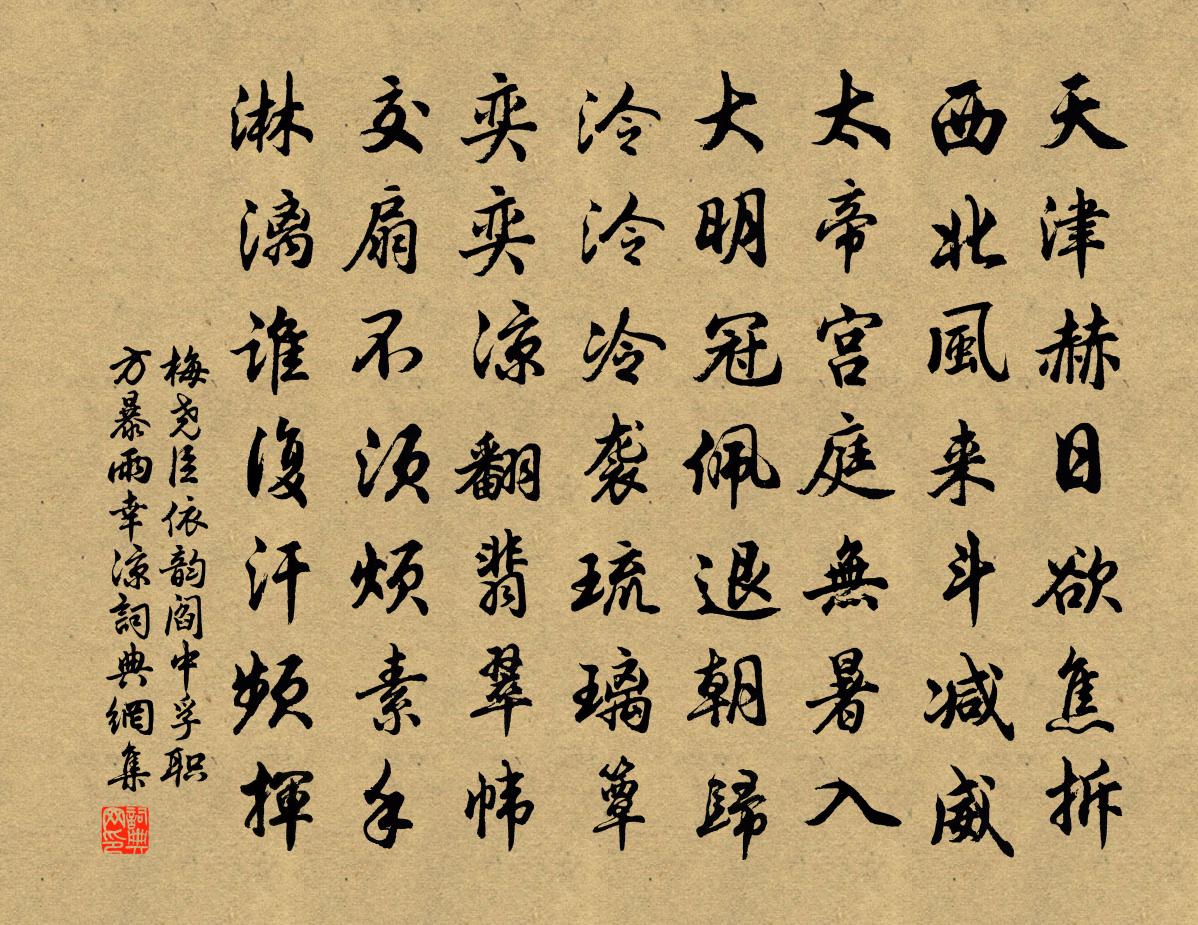 天津赫日欲焦拆
西北風来斗减威
太帝宫庭無暑入
大明冠佩退朝歸
泠泠冷袭琉璃簟
奕奕凉翻翡翠帏
交扇不须烦素手
淋漓谁復汗频揮
梅尧臣依韵阎中孚职
方暴雨幸凉詞典網集
詞典
网印